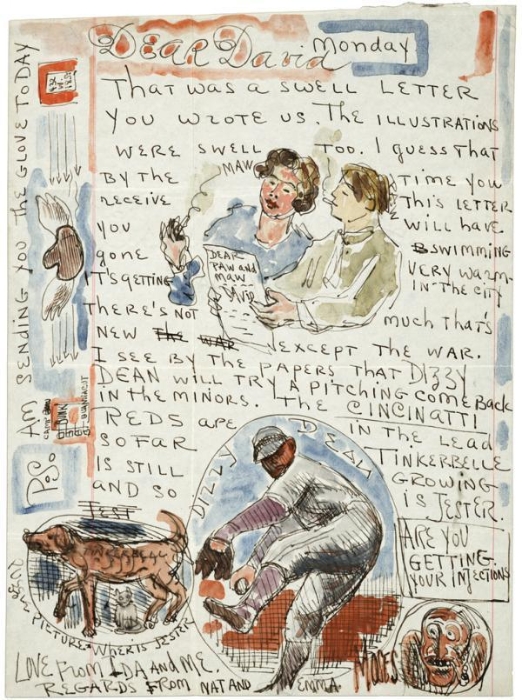 DEAR David
Monday
THAT WAS A SWELL LETTER
YOU WROTE US. THE ILLUSTRATIONS
WERE SWELL TOO. I GUESS THAT
BY THE TIME YOU
RECEIVE THIS LETTER
YOU WILL HAVE
GONE SWIMMING
IT'S GETTING VERY WARM
IN THE CITY
THERE'S NOT MUCH THAT'S
NEW THE WAR EXCEPT THE WAR.
I SEE BY THE PAPERS THAT DIZZY
DEAN WILL TRY A PITCHING COME BACK
IN THE MINORS. THE CINCINATTI
REDS ARE IN THE LEAD
SO FAR TINKERBELLE
IS STILL GROWING
AND SO IS JESTER.
MAW
DEAR
PAW and
MAW
DAVID
DIZZY DEAN
ARE YOU
GETTING
YOUR INJECTIONS
P.S. AM SENDING YOU THE GLOVE TODAY
PICTURE WHER IS JESTER
LOVE FROM IDA AND ME.
REGARDS FROM NAT AND EMMA
MOSES